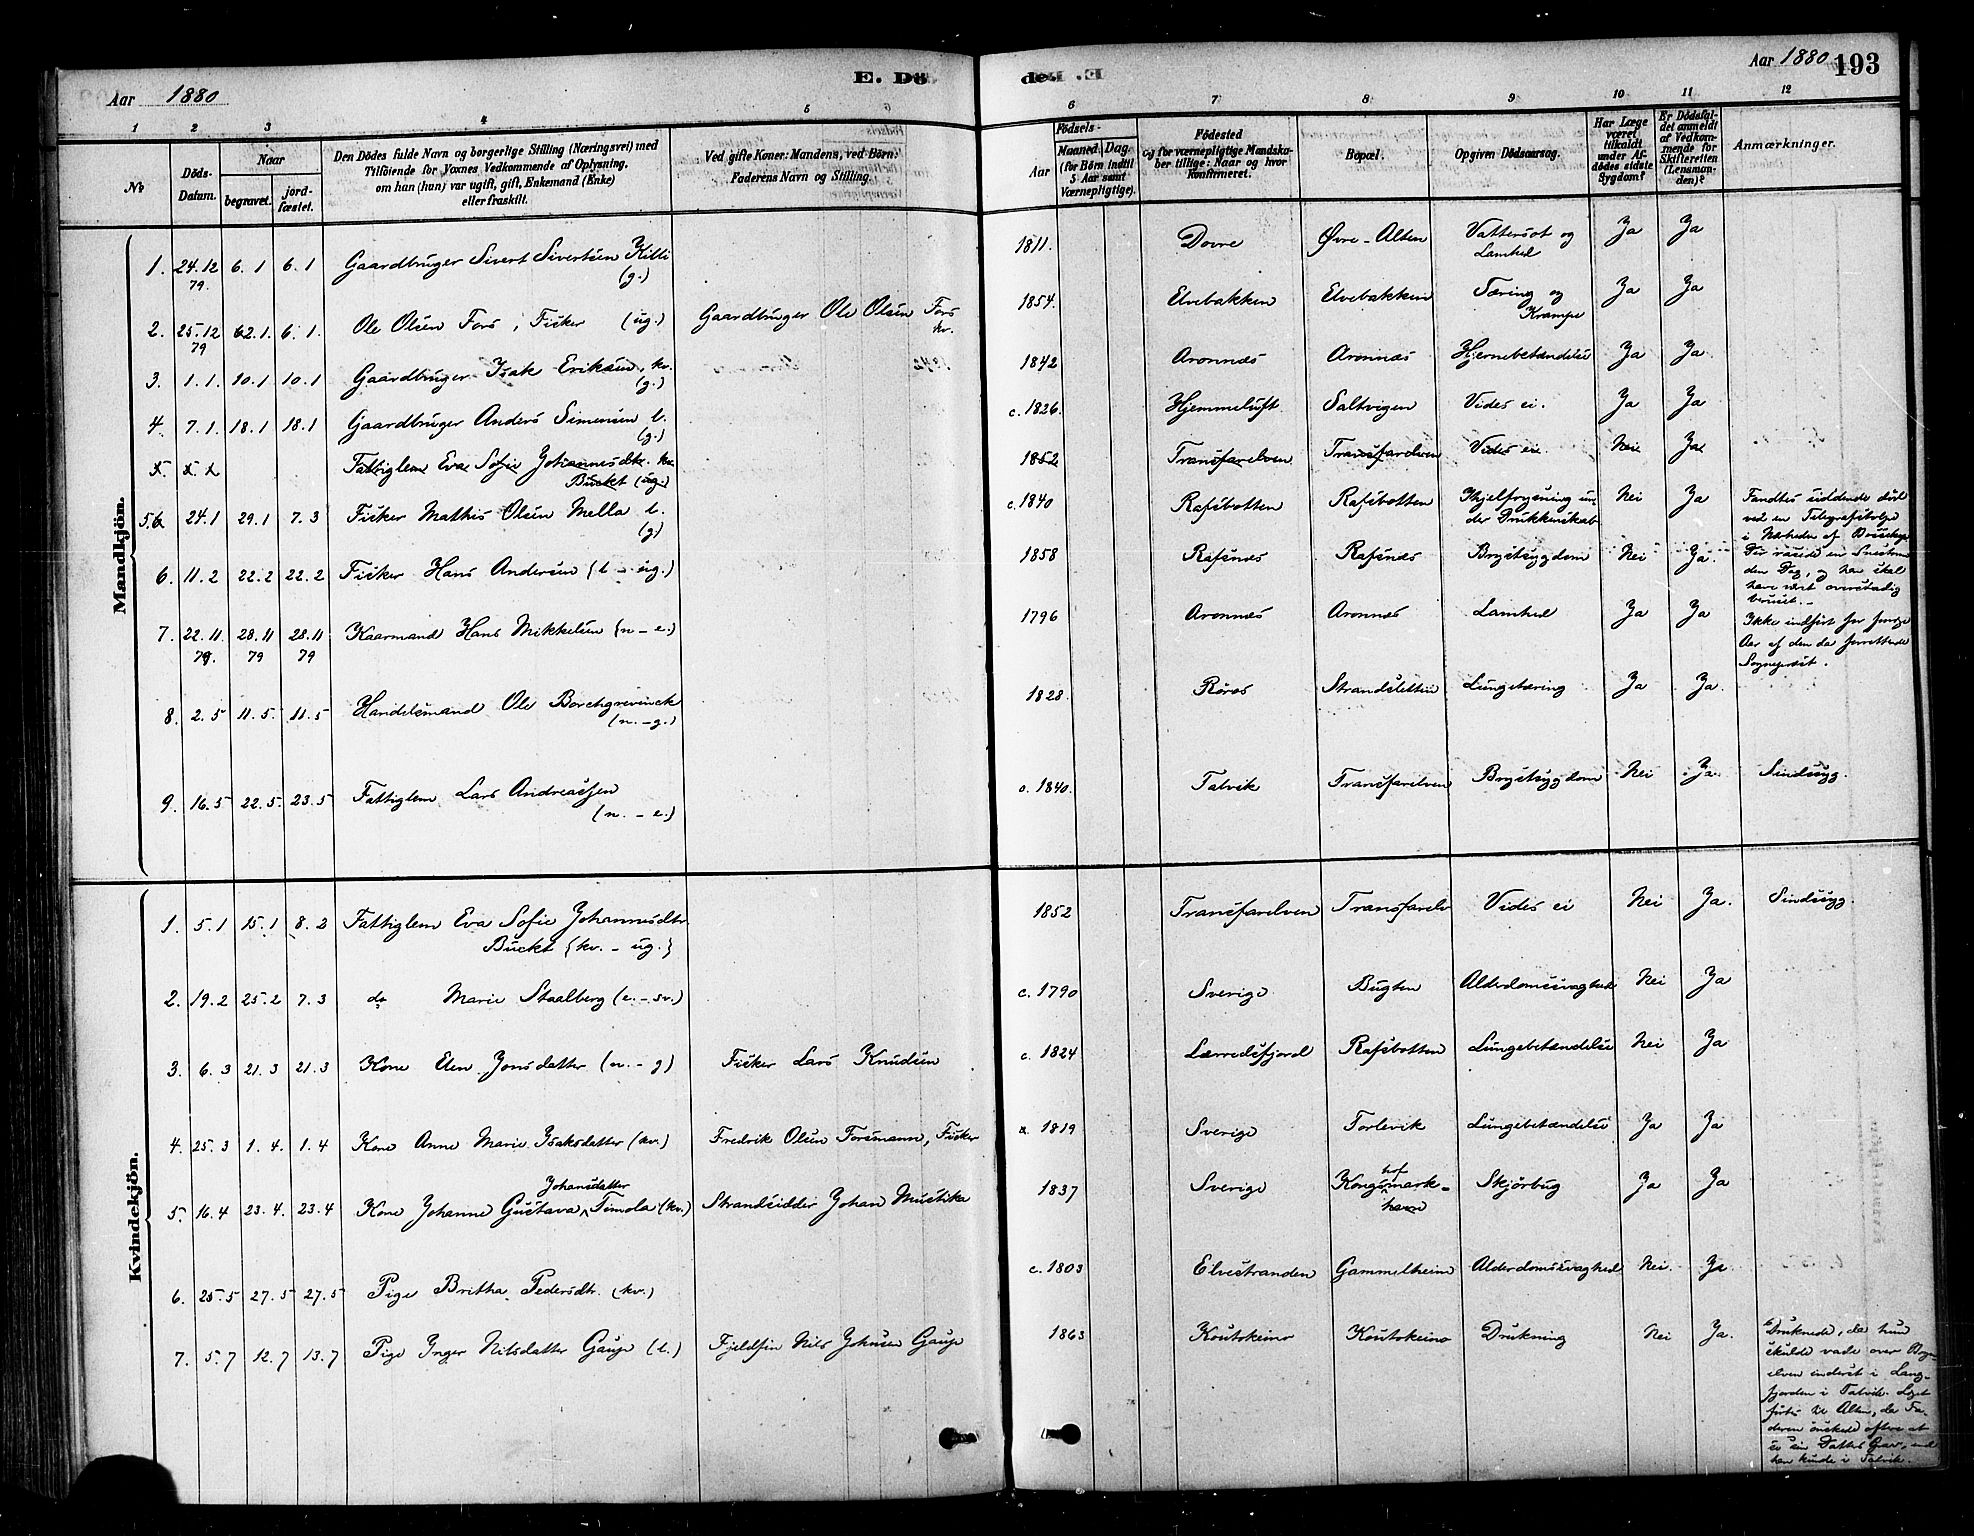 Aar 1880
E. Dö
de. E
Aar 1880 193
1 2 3 4 5 6 7 8 9 10 11 12
No
Döds-Datum.
Naar
begravet.
jord-fæstet.
Den Dödes fulde Navn og borgerlige Stilling (Næringsvei) med
Tilföiende for Voxnes Vedkommende af Oplysning,
om han (hun) var ugift, gift, Enkemand (Enke)
eller fraskilt.
Ved gifte Koner: Mandens, ved Börn:
Faderens Navn og Stilling.
Födsels-
Aar
Maaned. Dag.
(for Börn indtil
5 Aar samt
Værnepligtige).
Födested
og for værnepligtige Mandska-
ber tillige: Naar og hvor
konfirmeret.
Bopæl.
Opgiven Dödsaarsag.
Har Læge
været
tilkaldt
under Af-
dödes sidste
Sygdom?
Er Dödsfal-
det anmeldt
af Vedkom-
mende for
Skifteretten
(Lensman-
den)?
Anmærkninger.
Mandkjön.
1. 24.12 79. 6.1 6.1 Gaardbruger Sivert Sivertsen Killi (g.) 1811. Dovre Øvre-Alten Vattersot og Lamhed Ja Ja
2. 25.12 79 2.1. 6.1. Ole Olsen Fors, Fisker (ug.) Gaardbruger Ole Olsen Fors kv. 1854. Elvebakken Elvebakken Tæring og Krampe Ja Ja
3. 1.1. 10.1 10.1 Gaardbruger Isak Eriksen, kv. (g.) 1842 Aronnæs Aronnæs Hjernebetændelse Ja Ja
4. 7.1. 18.1 18.1 Gaardbruger Anders Simonsen l. (g.) c. 1826. Hjemmeluft Saltvigen Vides ei. Ja Ja
Fattiglem Eva Sofie Johannesdtr. kv. Buckt (ug.) 1852 Transfarelven Transfarelven Vides ei. Nei Ja
5. 24.1 29.1 7.3 Fisker Mathis Olsen Mella l. (g) c. 1840 Rafsbotten Rafsbotten Ihjelfrysning un-der Drukkenskab Nei Ja Fandtes siddende död
ved en Telegrafstolpe
i Nærheden af Bossekop
Der rasede en Snestorm
den Dag, og han skal
have været overstadig
beruset.
6. 11.2 22.2 22.2 Fisker Hans Andersen (l - ug.) 1858 Rafsnæs Rafsnæs Brystsygdom Nei Ja.
7. 22.11 79. 28.11 79 28.11 79 Kaarmand Hans Mikkelsen (n - e.) 1796 Aronnæs Aronnæs Lamhed Ja Ja Ikke indført for forrige
Aar af den da forrettende
Sognepræst.
8. 2.5 11.5. 11.5 Handelsmand Ole Borchgrevinck (n. - g.) 1828. Røros Strandsletten Lungetæring Ja Ja.
9. 16.5 22.5. 23.5 Fattiglem Lars Andreassen (n. - e.) c. 1840. Talvik Transfarelven Brystsygdom Nei Ja. Sindssyg.
Kvindekjön.
1. 5.1 15.1 8.2 Fattiglem Eva Sofie Johannesdtr Buckt (kv. - ug.) 1852 Transfarelven Transfarelv Vides ei Nei Ja. Sindssyg.
2. 19.2 25.2 7.3 do Marie Staalberg (e. - sv.) c. 1790 Sverige Bugten Alderdomssvaghed Nei Ja
3. 6.3 21.3 21.3 Kone Elen Jonsdatter (n. - g) Fisker Lars Knudsen c. 1824 Lerredsfjord Rafsbotten Lungebetændelse Nei Ja
4. 25.3 1.4. 1.4 Kone Anne Marie Isaksdatter (kv.) Fredrik Olsen Forsmann, Fisker 1819 Sverige Torlevik Lungebetændelse Ja Ja
5. 16.4 23.4. 23.4 Kone Johanne Gustava Johansdatter Timola (kv.) Strandsidder Johan Mustika 1837 Sverige Kongshofmark- Skjörbug Ja Ja
6. 25.5 27.5 27.5 Pige Britha Pedersdtr. (kv.) c. 1803 Elvestranden Gammelheim Alderdomssvaghed Nei. Ja
7. 5.7 12.7 13.7 Pige Inger Nilsdatter Gaup (l.) Fjeldfin Nils Johnsen Gaup 1863 Koutokeino Koutokeino Drukning Nei Ja. Druknede, da hun
skulde vade over
elven inderst i Lang-
fjorden i Talvik.
til Alten, da Fa-
deren önskede oftere at
se sin Datters Grav, end
han kunde i Talvik.